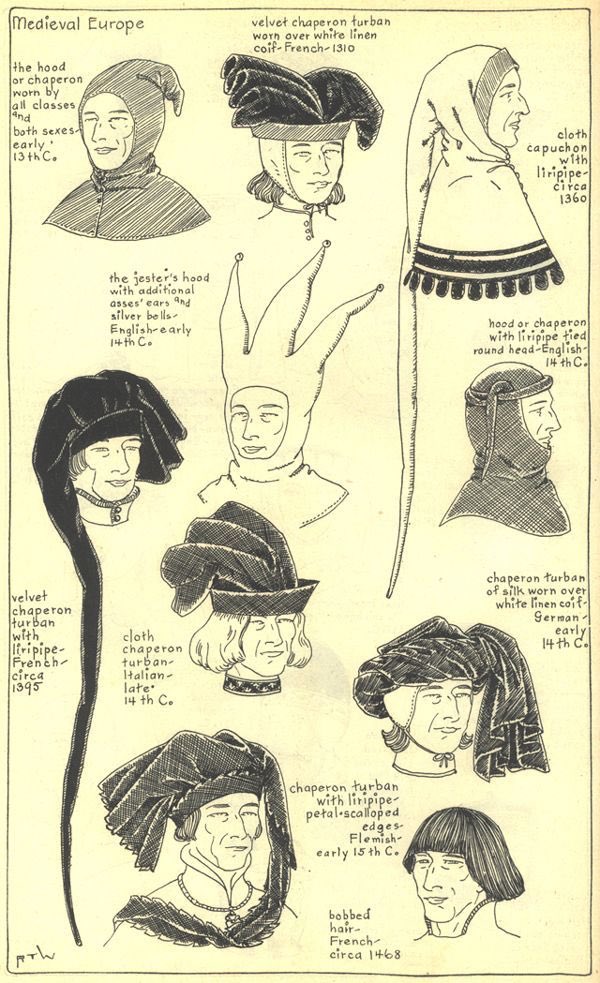 Medieval Europe
the hood
or chaperon
worn by
all classes
and
both sexes-
early
13th C.
velvet chaperon turban
worn over white linen
coif-French-1310
cloth
capuchon
with
liripipe-
circa
1360
the jester's hood
with additional
asses' ears and
silver bells-
English-early
14th C.
hood or chaperon
with liripipe tied
round head-English-
14th C.
velvet
chaperon
turban
with
liripipe-
French-
circa
1395
cloth
chaperon
turban-
Italian-
late-
14th C.
chaperon turban
of silk worn over
white linen coif-
German-
early
14th C.
chaperon turban
with liripipe-
petal-scalloped
edges-
Flemish-
early 15th C.
bobbed
hair-
French-
circa 1468
RTW